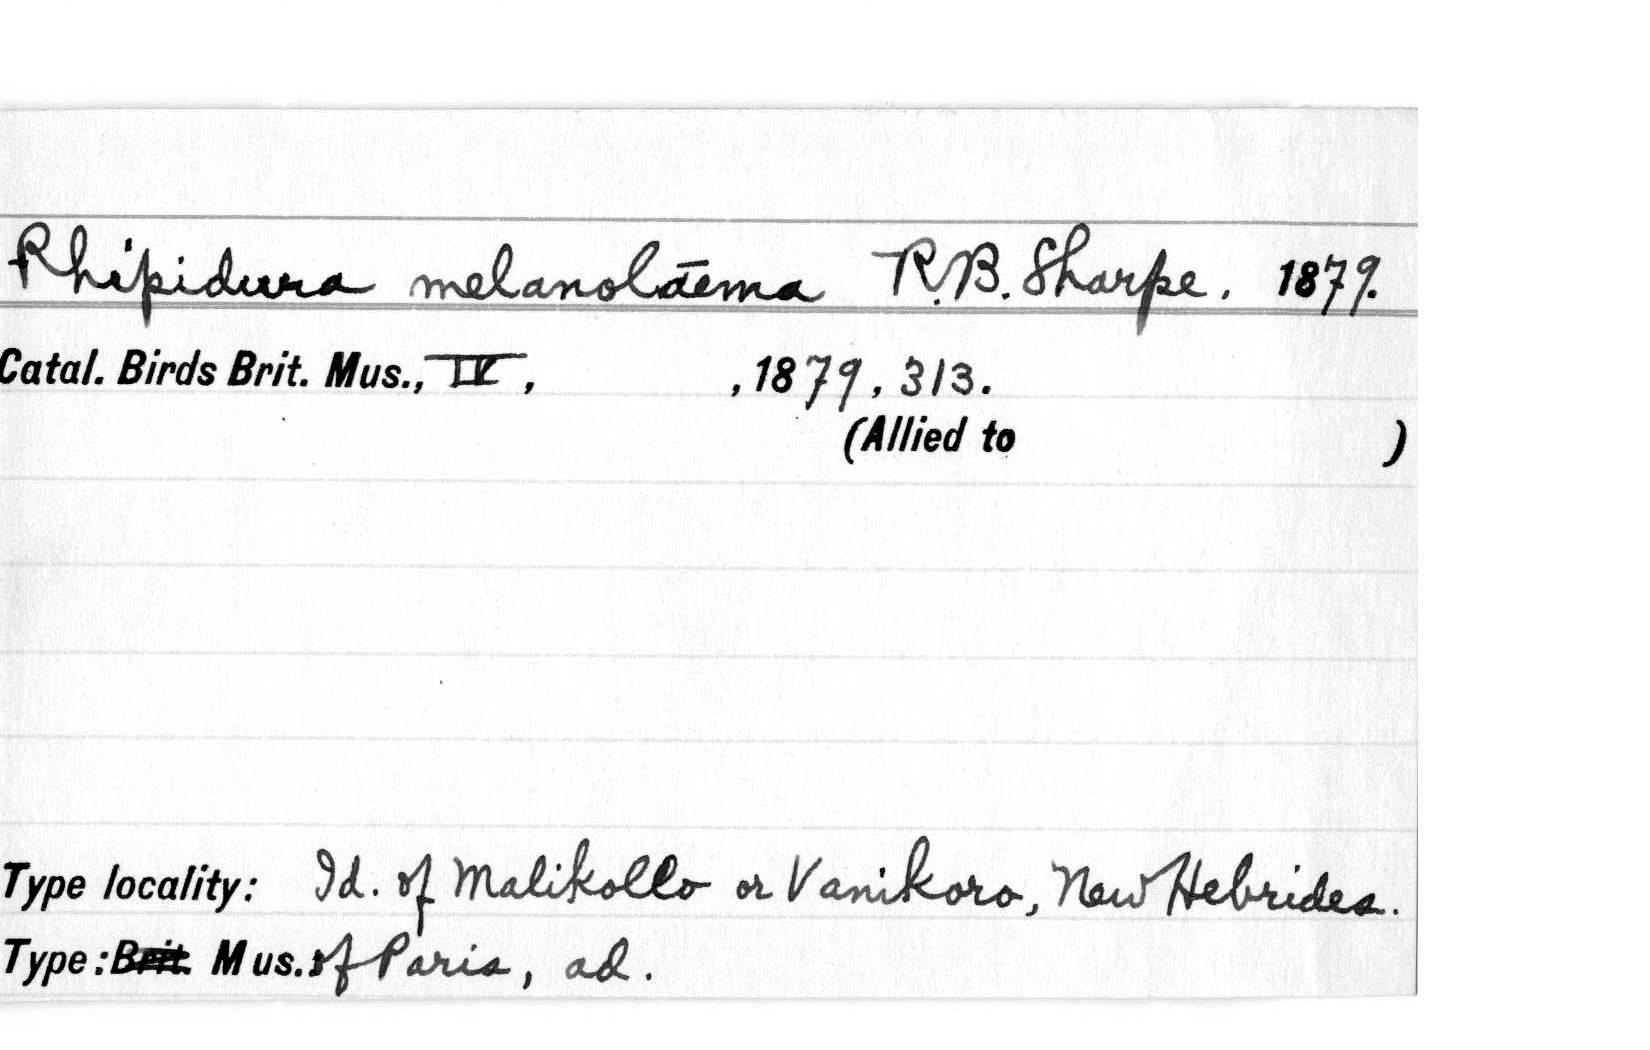 Rhipidura melanolaema R.B. Sharpe. 1879.
Catal. Birds Brit. Mus., IV, , 1879, 313.
(Allied to )
Type locality: Id. of Malikollo or Vanikoro, New Hebrides.
Type: Brit. Mus.: of Paris, ad.